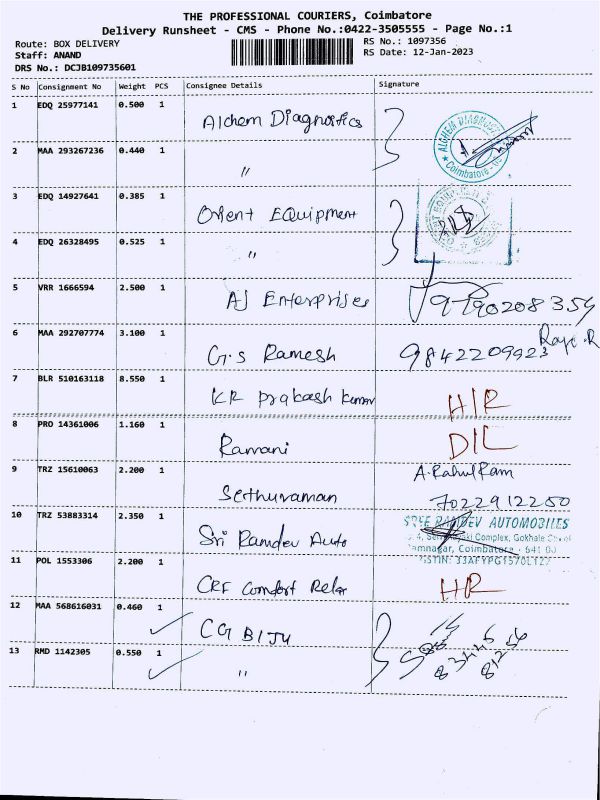 THE PROFESSIONAL COURIERS, Coimbatore
Delivery Runsheet - CMS - Phone No.:0422-3505555 - Page No.:1
Route: BOX DELIVERY
Staff: ANAND
DRS No.: DCJB109735601
RS No.: 1097356
RS Date: 12-Jan-2023
S No Consignment No Weight PCS Consignee Details Signature
1 EDQ 25977141 0.500 1 Alchem Diagnostics
ALCHEM DIAGNOSTICS
Coimbatore
2 MAA 293267236 0.440 1 〃
3 EDQ 14927641 0.385 1 Orient Equipment
4 EDQ 26328495 0.525 1 〃
5 VRR 1666594 2.500 1 AJ Enterprises 9790208354
6 MAA 292707774 3.100 1 G.S Ramesh 9842209923
7 BLR 510163118 8.550 1 KR Prakash Kumar H/R
8 PRO 14361006 1.160 1 Ramani D/L
9 TRZ 15610063 2.200 1 Sethuraman A.RahulRam
7022912250
10 TRZ 53883314 2.350 1 Sri Ramdev Auto
SREE RAMDEV AUTOMOBILES
Complex, Gokhale
Coimbatore - 641 00
11 POL 1553306 2.200 1 CRF Comfort Relax H/R
12 MAA 568616031 0.460 1 CG BIJU
13 RMD 1142305 0.550 1 〃